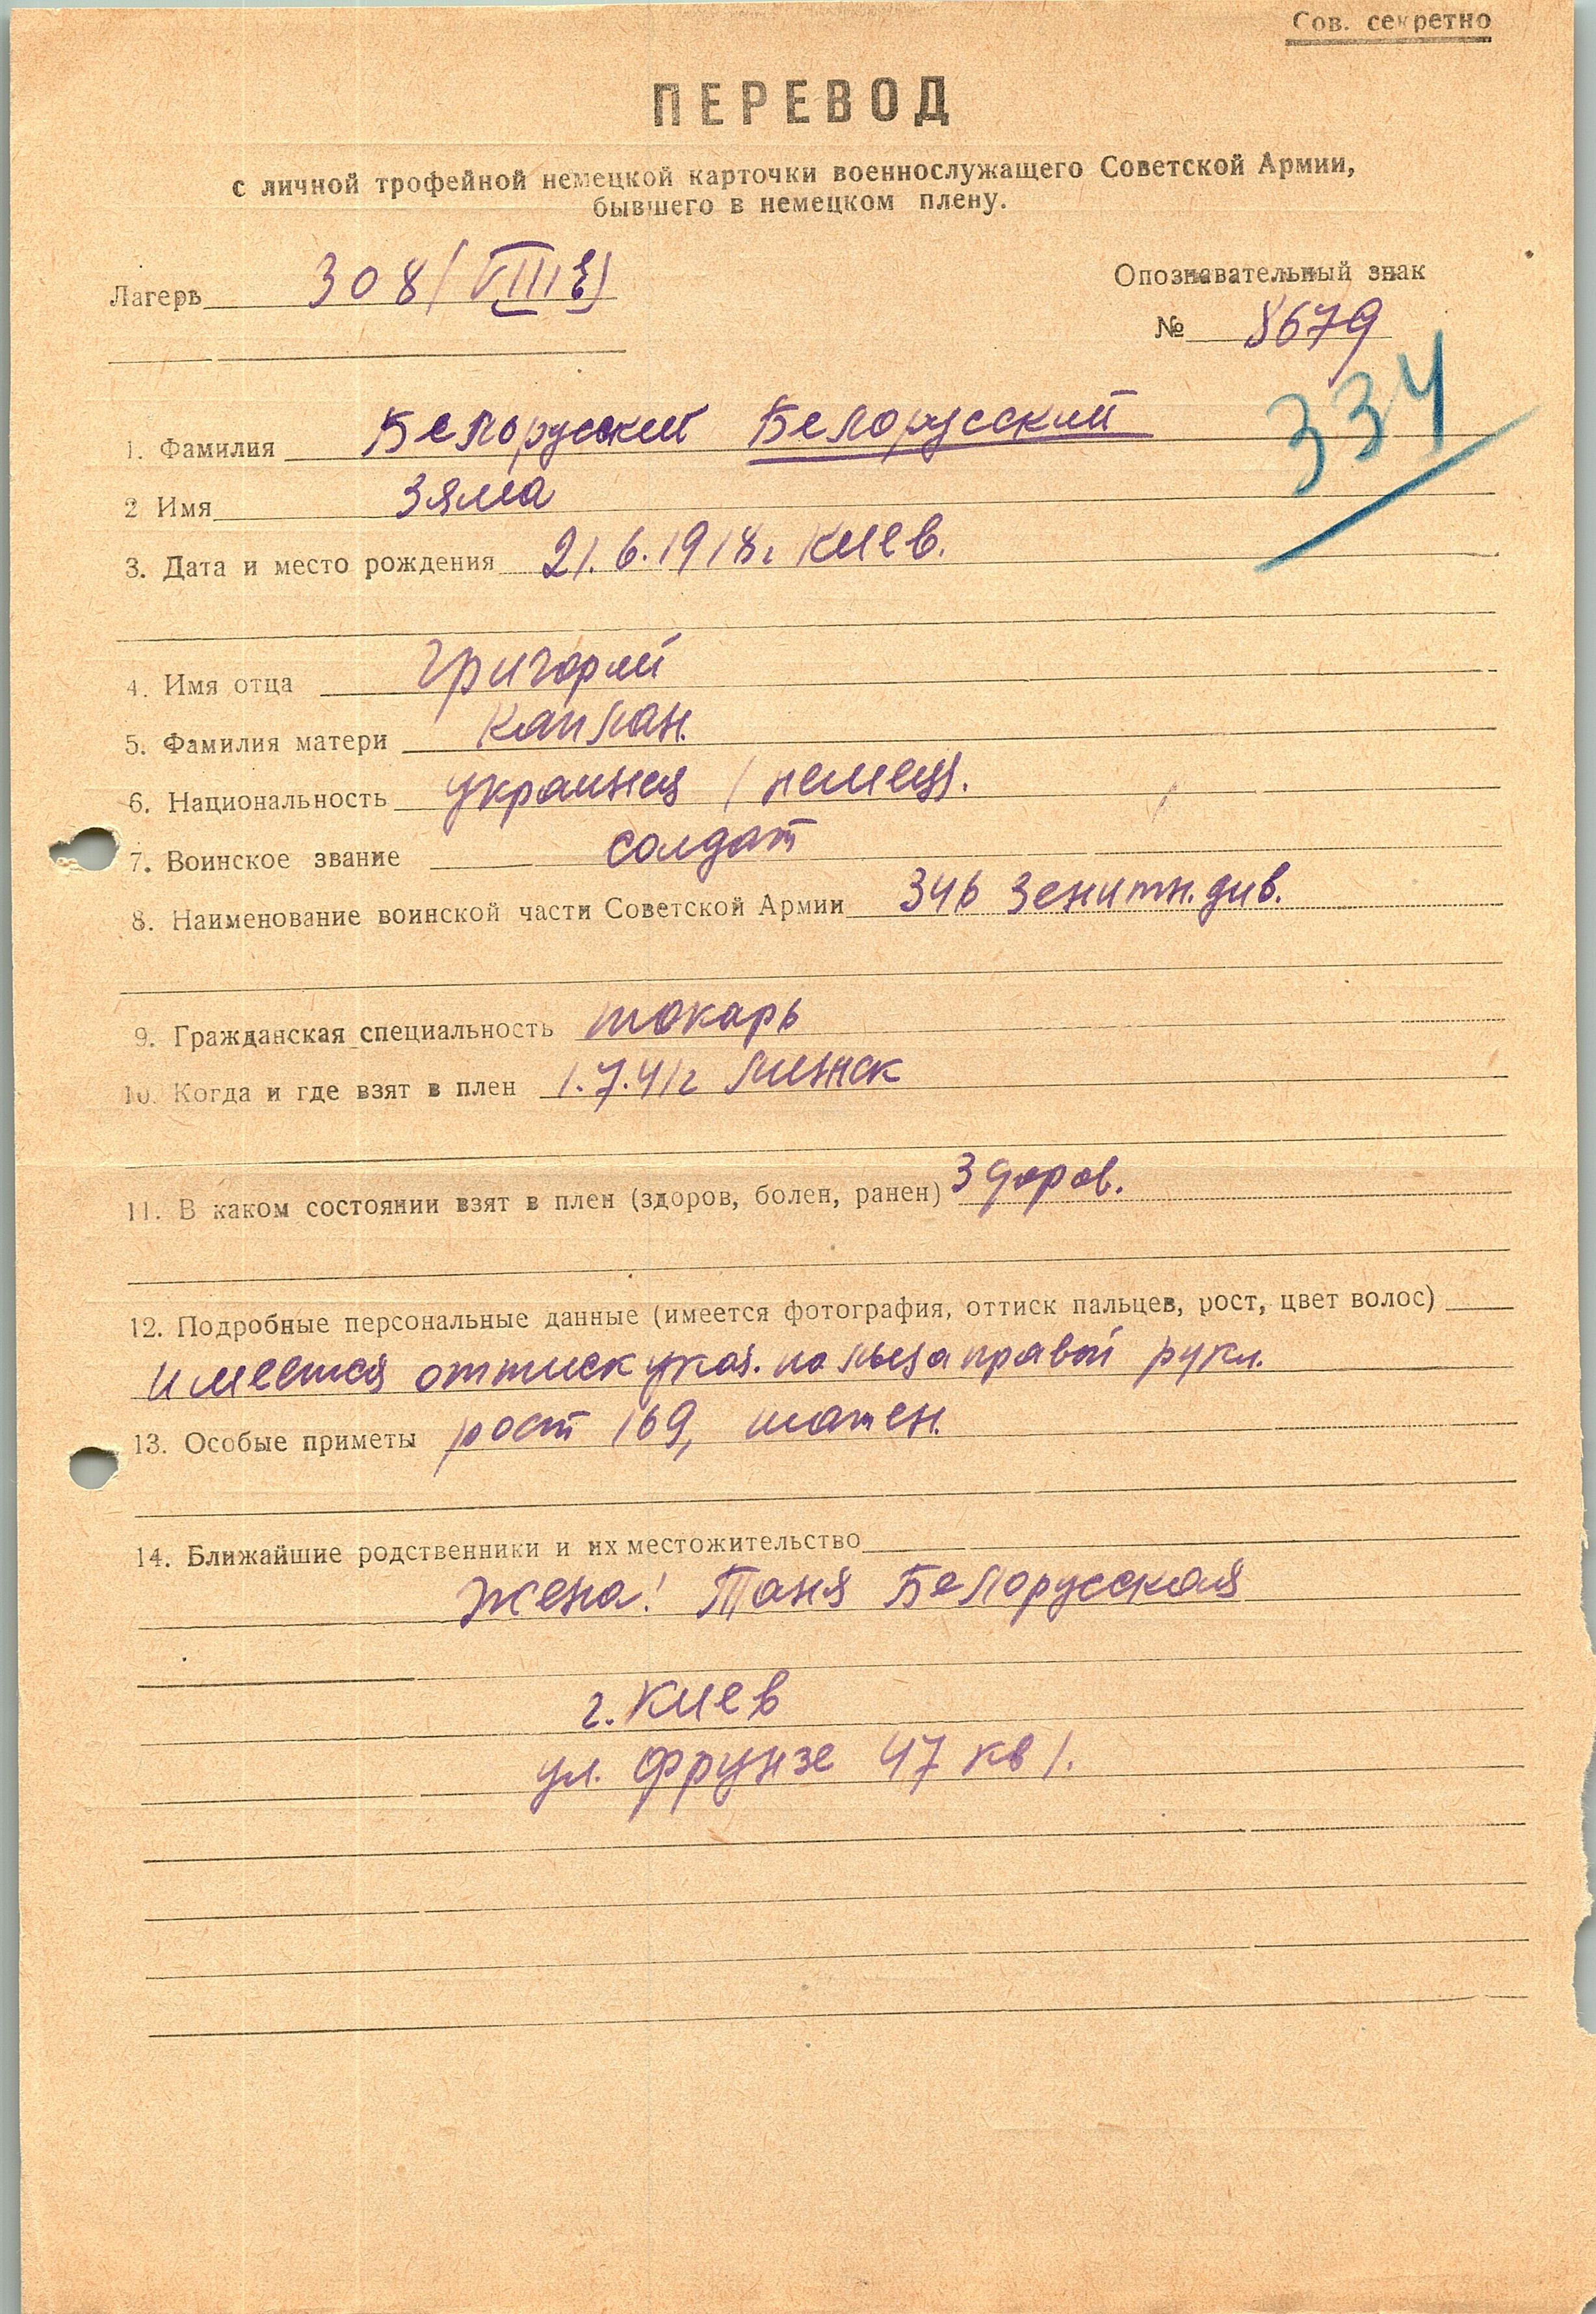 Сов. секретно
ПЕРЕВОД
с личной трофейной немецкой карточки военнослужащего Советской Армии,
бывшего в немецком плену.
Лагерь 308 (VIII E)
Опознавательный знак
№ 8679
334
1. Фамилия Белоруский Белорусский
2 Имя Зяма
3. Дата и место рождения 21.6.1918г Киев.
4. Имя отца Григорий
5. Фамилия матери Каплан.
6. Национальность украинец / немец.
7. Воинское звание солдат
8. Наименование воинской части Советской Армии 346 Зенитн. див.
9. Гражданская специальность токарь
10. Когда и где взят в плен 1.7.41г Минск
11. В каком состоянии взят в плен (здоров, болен, ранен) Здоров.
12. Подробные персональные данные (имеется фотография, оттиск пальцев, рост, цвет волос)
имеется оттиск указ. пальца правой руки.
13. Особые приметы рост 169, шатен.
14. Ближайшие родственники и их местожительство
Жена: Таня Белорусская
г. Киев
ул. Фрунзе 47 кв 1.